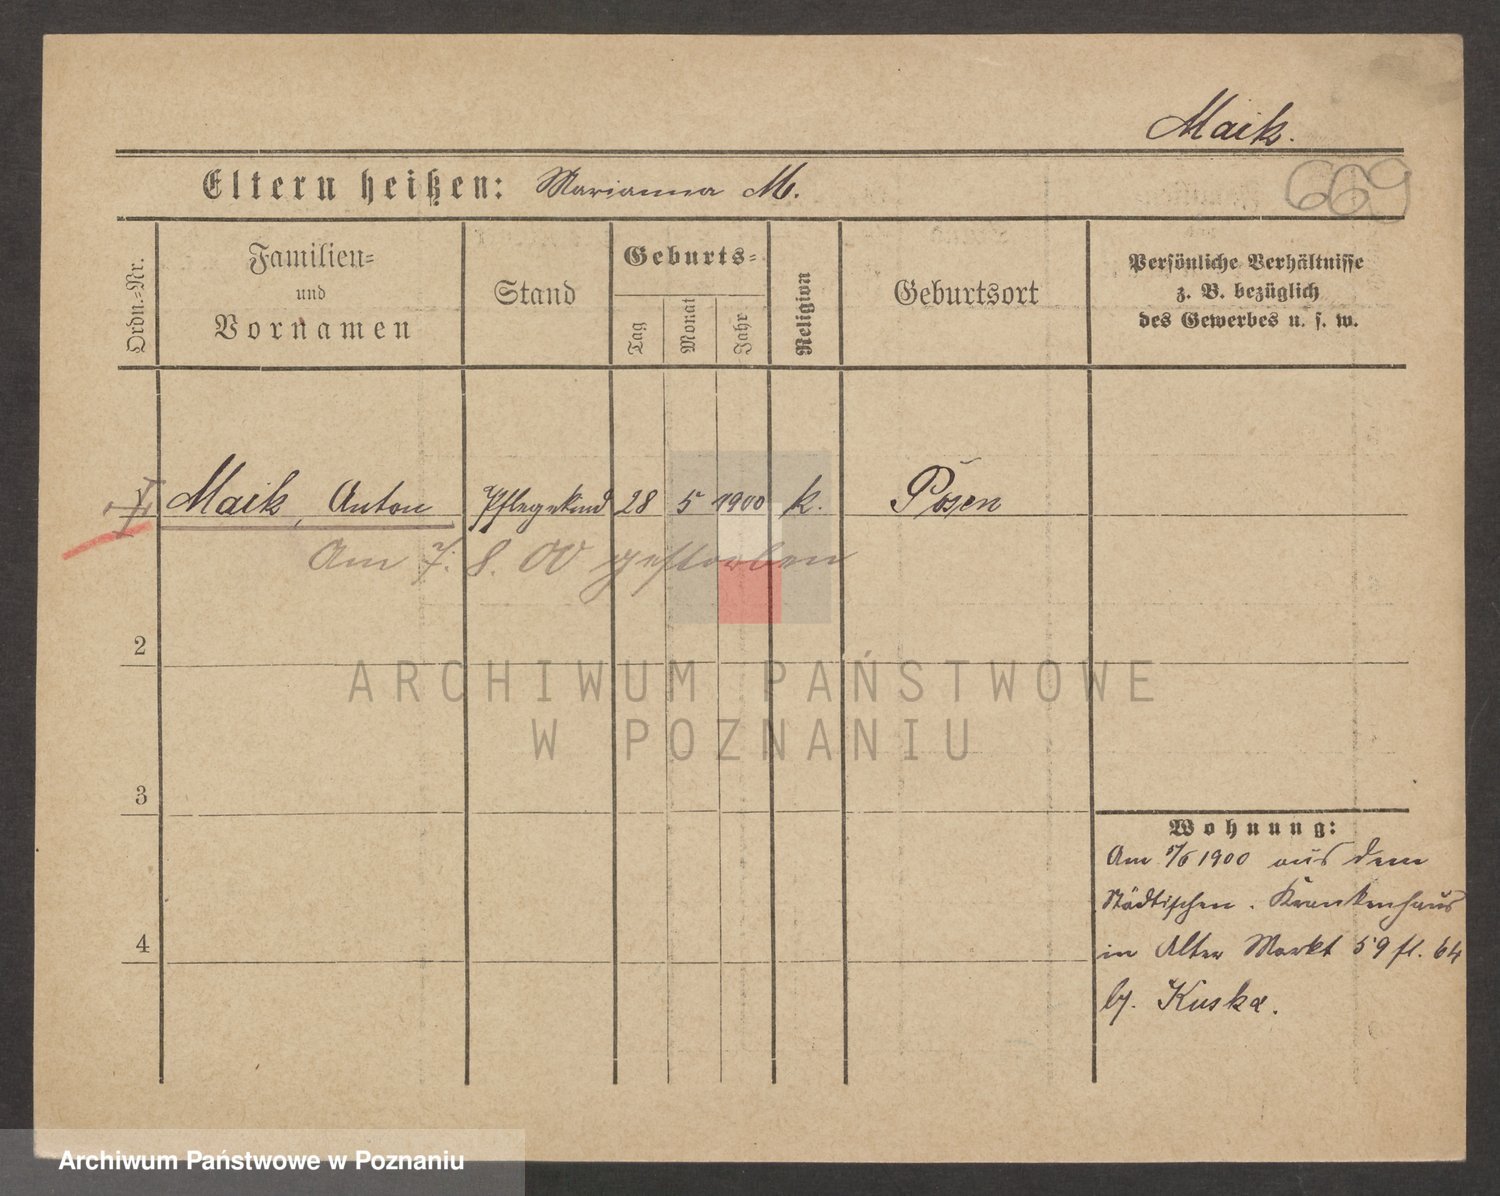 Maik.
Eltern heißen: Marianna M.
669
Ordn.-Nr.
Familien-
und
Vornamen
Stand
Geburts-
Tag
Monat
Jahr
Religion
Geburtsort
Persönliche Verhältnisse
z. B. bezüglich
des Gewerbes u. s. w.
Maik, Anton Pflegekind 28 5 1900 k. Posen
Am 7. 8. 00 gestorben
2
3
4
Wohnung:
Am 1900 aus dem
Städtischen. Krankenhaus
in Alter Markt 59 64
by. Kuska.
ARCHIWUM PAŃSTWOWE
W POZNANIU
Archiwum Państwowe w Poznaniu